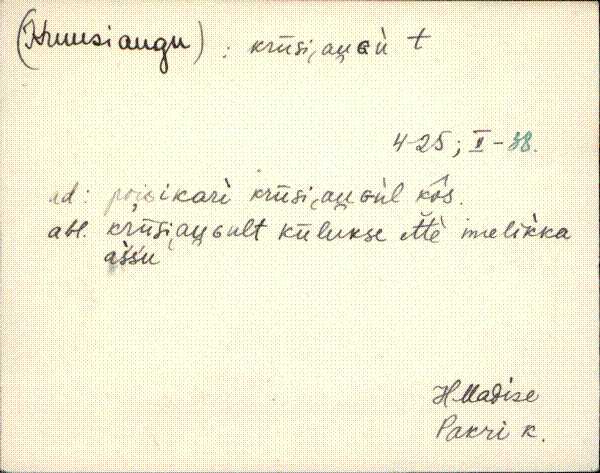 (Kruusiaugu) : krūsi͵au̯ɢù t
4-25; II - 38.
ad: poisikari krūsi͵au̯ɢùl kôs.
abl. krūsi͵au̯ɢult kūlukse ĕttè imelikka
aššu
H Madise
Pakri k.